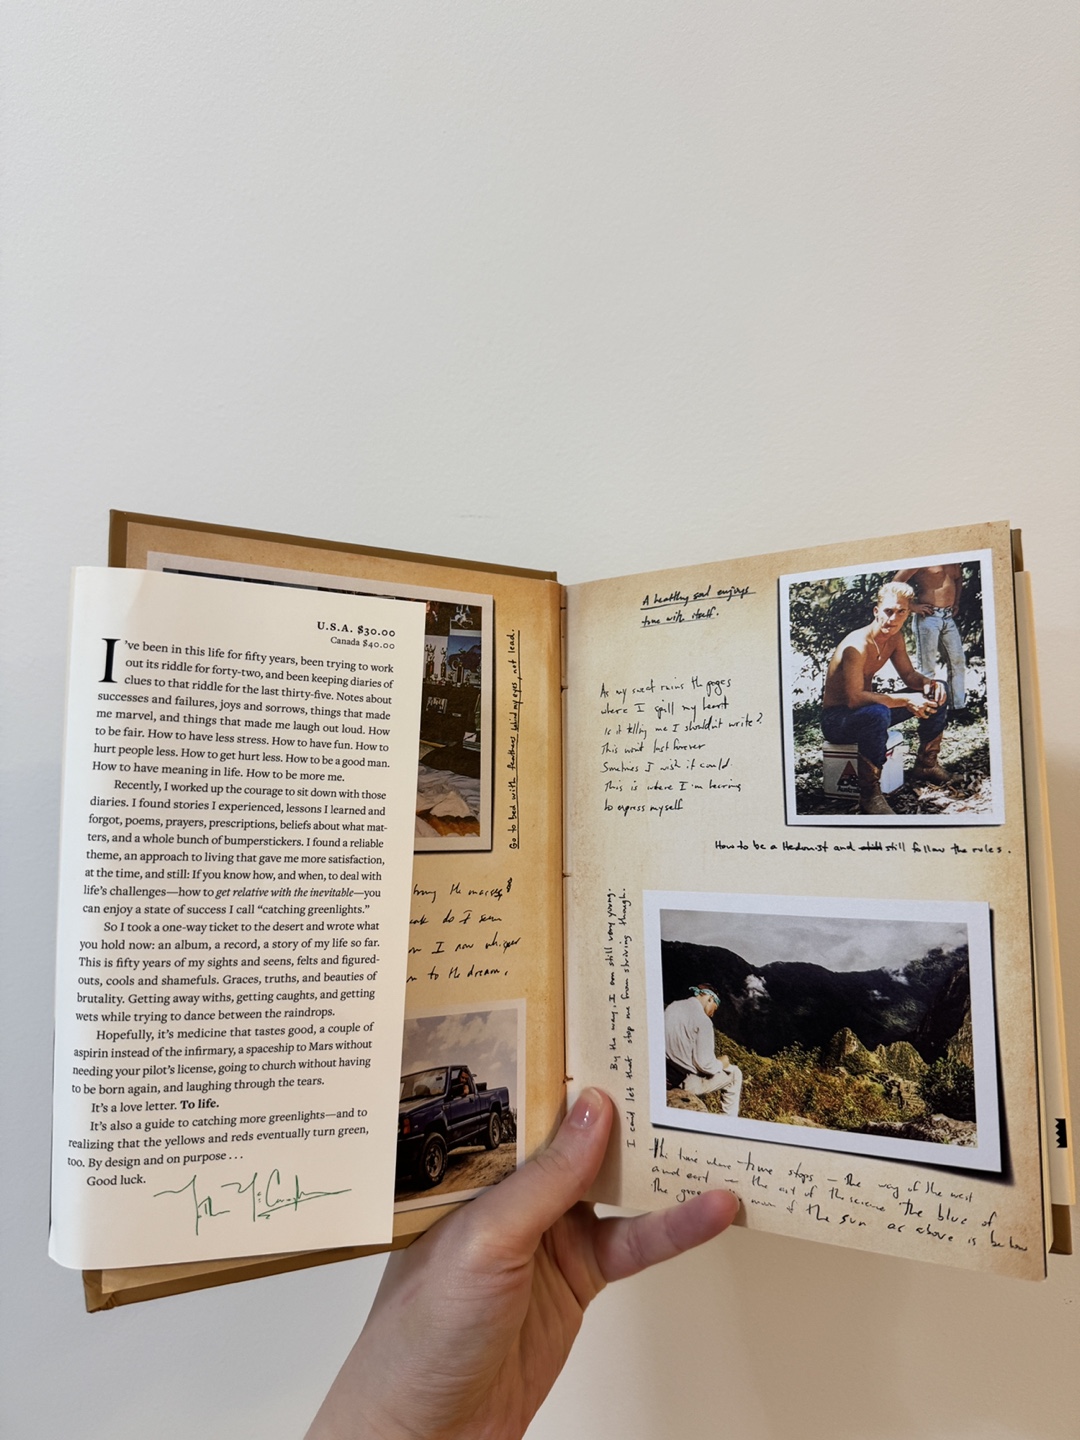 U.S.A. $30.00
Canada $40.00
I've been in this life for fifty years, been trying to work
out its riddle for forty-two, and been keeping diaries of
clues to that riddle for the last thirty-five. Notes about
successes and failures, joys and sorrows, things that made
me marvel, and things that made me laugh out loud. How
to be fair. How to have less stress. How to have fun. How to
hurt people less. How to get hurt less. How to be a good man.
How to have meaning in life. How to be more me.
Recently, I worked up the courage to sit down with those
diaries. I found stories I experienced, lessons I learned and
forgot, poems, prayers, prescriptions, beliefs about what mat-
ters, and a whole bunch of bumperstickers. I found a reliable
theme, an approach to living that gave me more satisfaction,
at the time, and still: If you know how, and when, to deal with
life's challenges—how to get relative with the inevitable—you
can enjoy a state of success I call “catching greenlights.”
So I took a one-way ticket to the desert and wrote what
you hold now: an album, a record, a story of my life so far.
This is fifty years of my sights and seens, felts and figured-
outs, cools and shamefuls. Graces, truths, and beauties of
brutality. Getting away withs, getting caughts, and getting
wets while trying to dance between the raindrops.
Hopefully, it's medicine that tastes good, a couple of
aspirin instead of the infirmary, a spaceship to Mars without
needing your pilot's license, going to church without having
to be born again, and laughing through the tears.
It's a love letter. To life.
It's also a guide to catching more greenlights—and to
realizing that the yellows and reds eventually turn green,
too. By design and on purpose . . .
Good luck.
Go to bed with feathers behind my eyes, not lead.
the masses
do I seem
I now whisper
to the dream,
A healthy soul enjoys
time with itself.
As my sweat ruins the pages
where I spill my heart
Is it telling me I shouldn't write?
This won't last forever
Sometimes I wish it could.
This is where I'm learning
to express myself
How to be a Hedonist and still follow the rules.
By the way, I am still very young.
I can't let that stop me from striving though.
time stops — the way of the west
and east — the art of the blue of
the of the sun as above is below